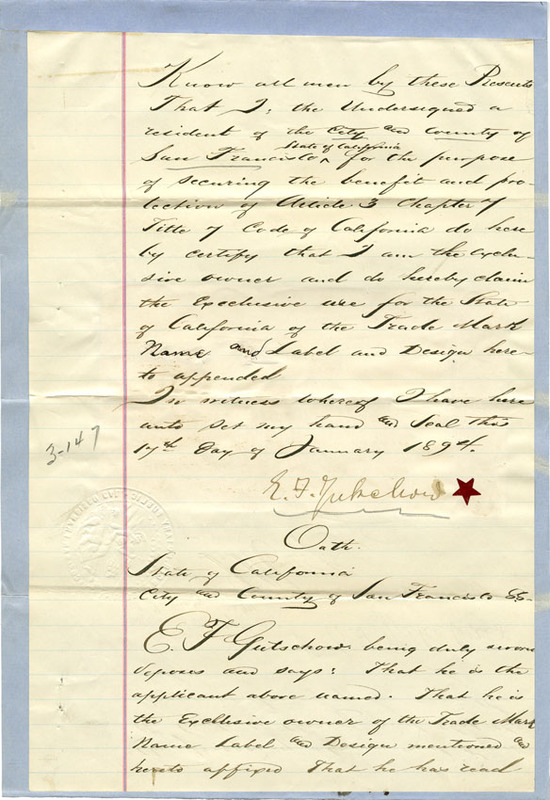 Know all men by these Presents
That I, the Undersigned a
resident of the City and County of
State of California
San Francisco ^ for the purpose
of securing the benefit and pro-
tection of Article 3 Chapter 7
Title 7 Code of California do here
by certify that I am the exclu-
sive owner and do hereby claim
the Exclusive use for the State
of California of the Trade Mark
Name and Label and Design here-
to appended
In witness whereof I have here
unto set my hand and Seal this
17th Day of January 1894.
3-147
E. F. Gutschow
Oath.
State of California
City and County of San Francisco SS-
E. F Gutschow being duly sworn
deposes and says: That he is the
applicant above named. That he is
the Exclusive owner of the Trade Mark
Name Label and Design mentioned and
hereto affixed That he has read